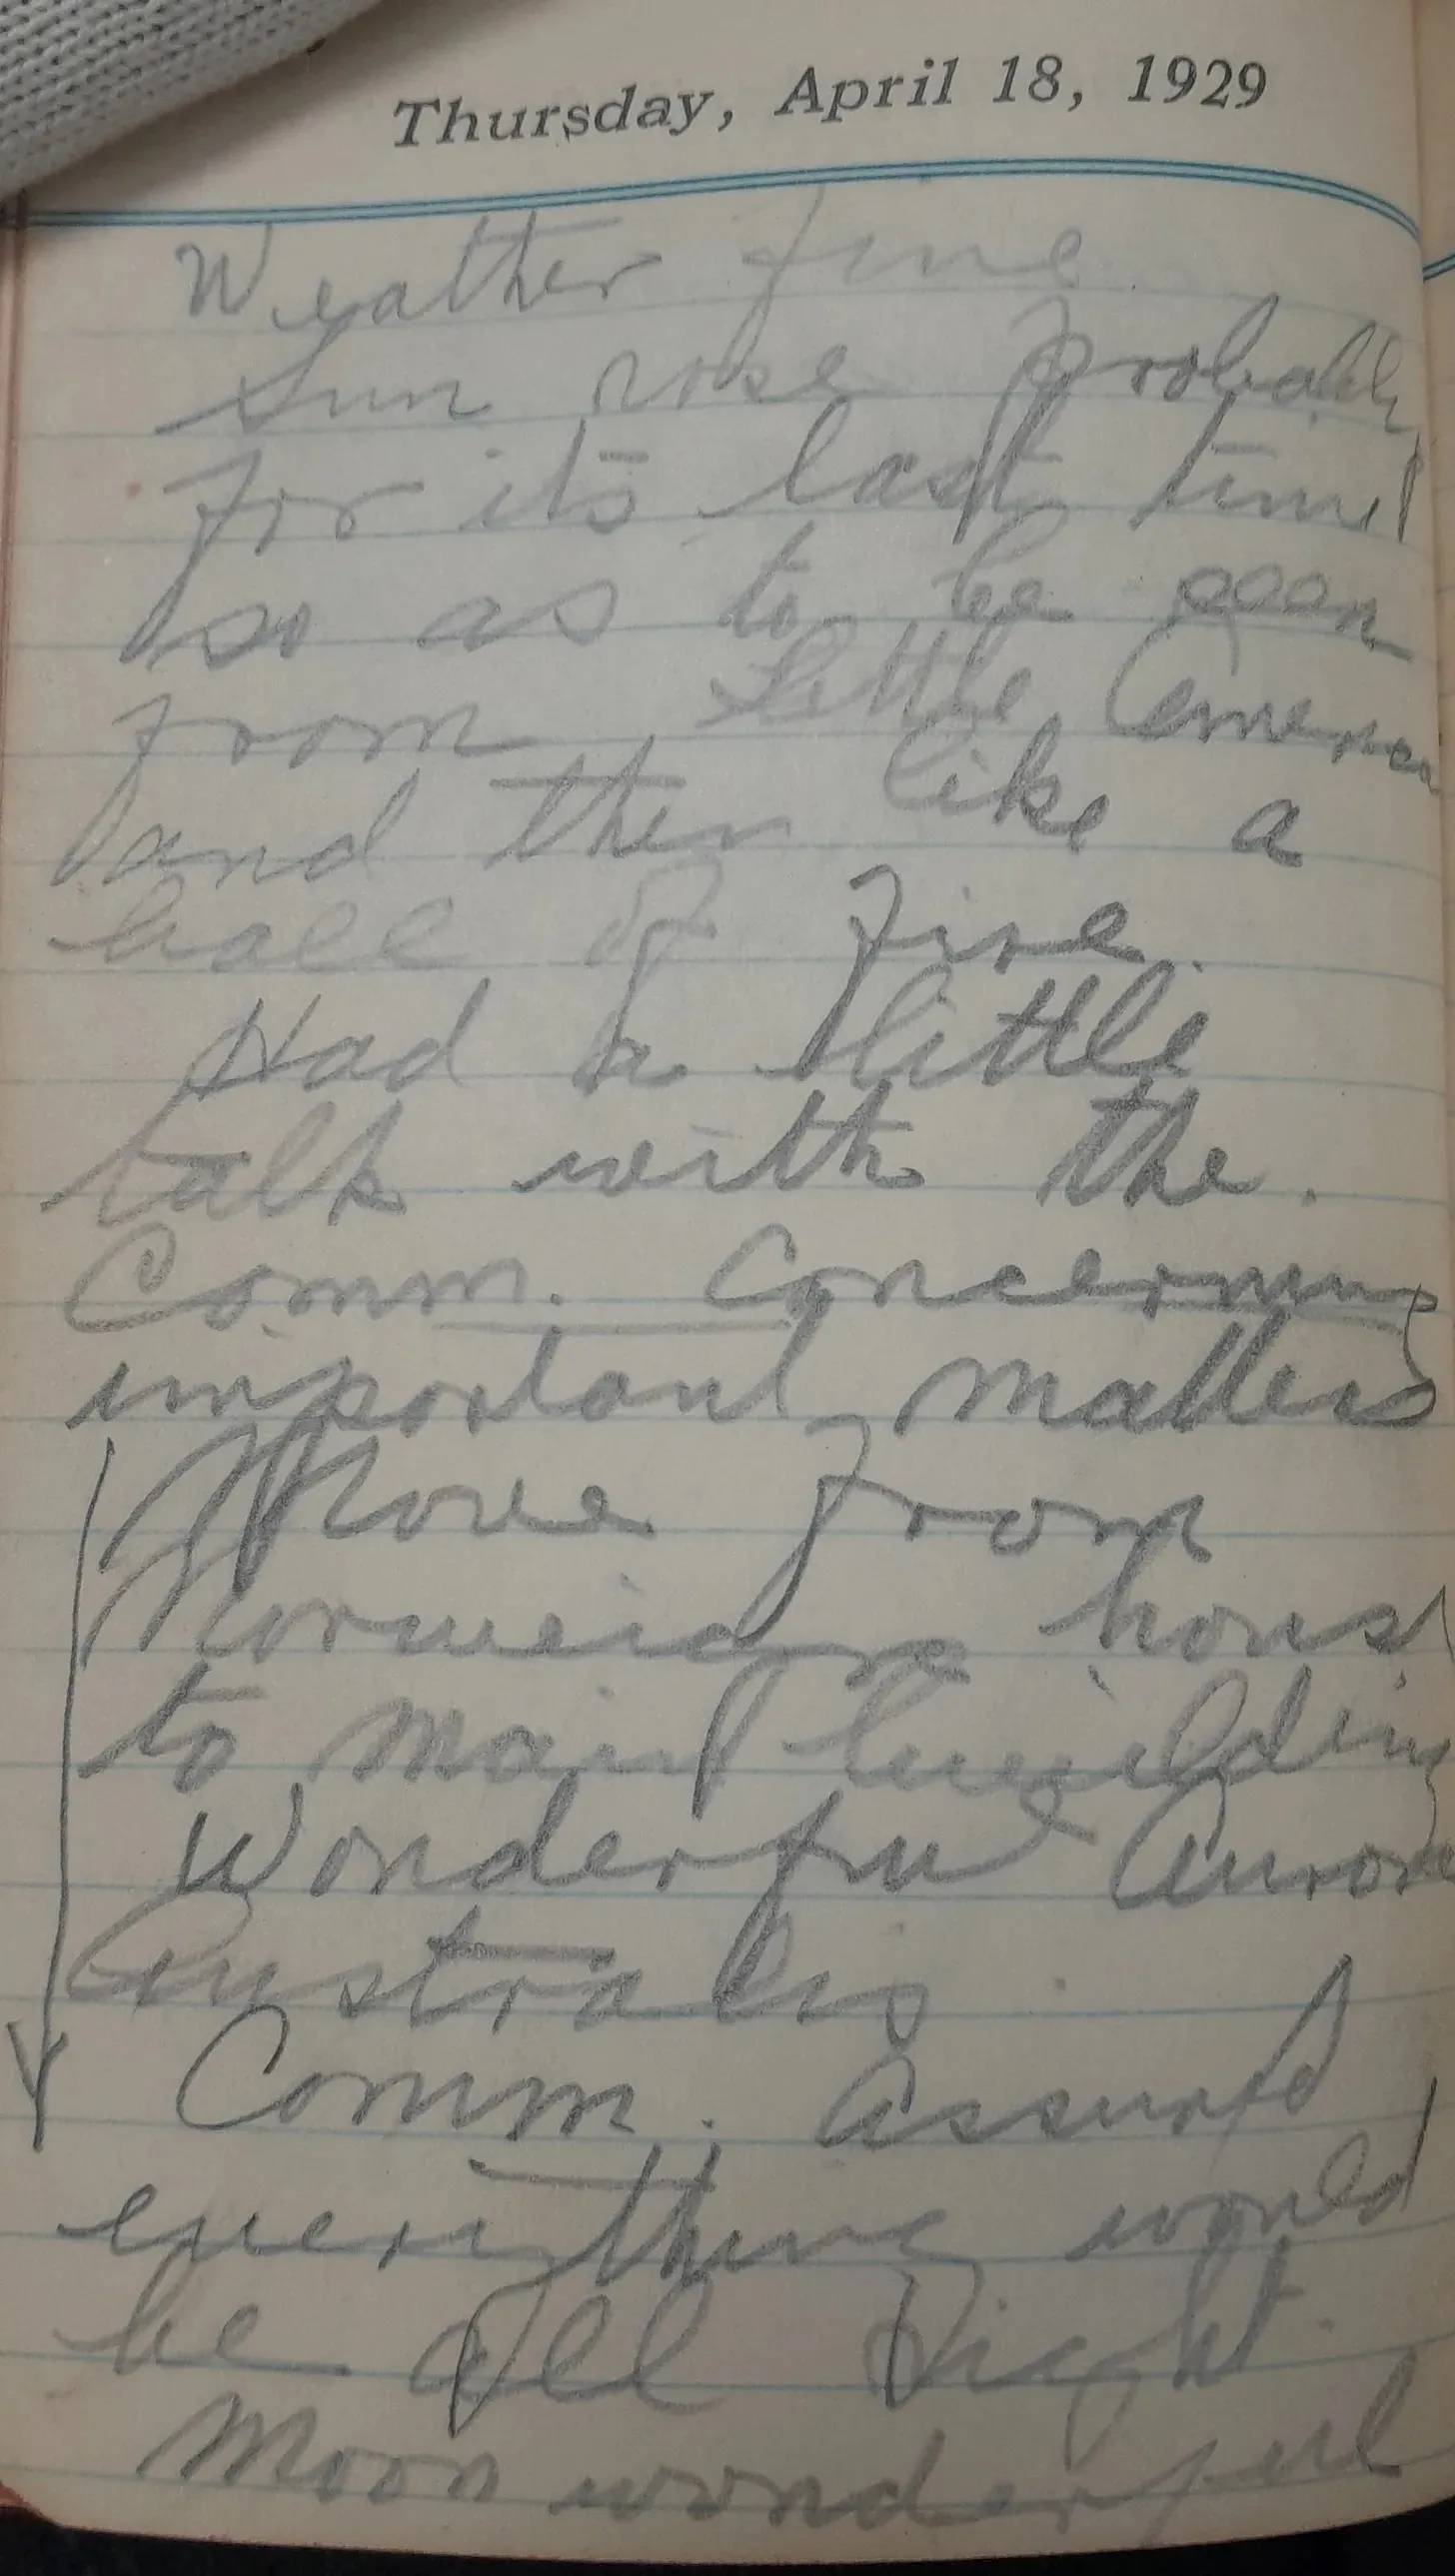 Thursday, April 18, 1929
Weather fine
Sun rose probably
for its last time
so as to be seen
from Little America
and then like a
ball of fire.
Had a little
talk with the
Comm. concerning
important matters
Move from
Norweign house
to main building
Wonderful Aurora
Australis
Comm. assured
everything would
be all right.
Moon wonderful